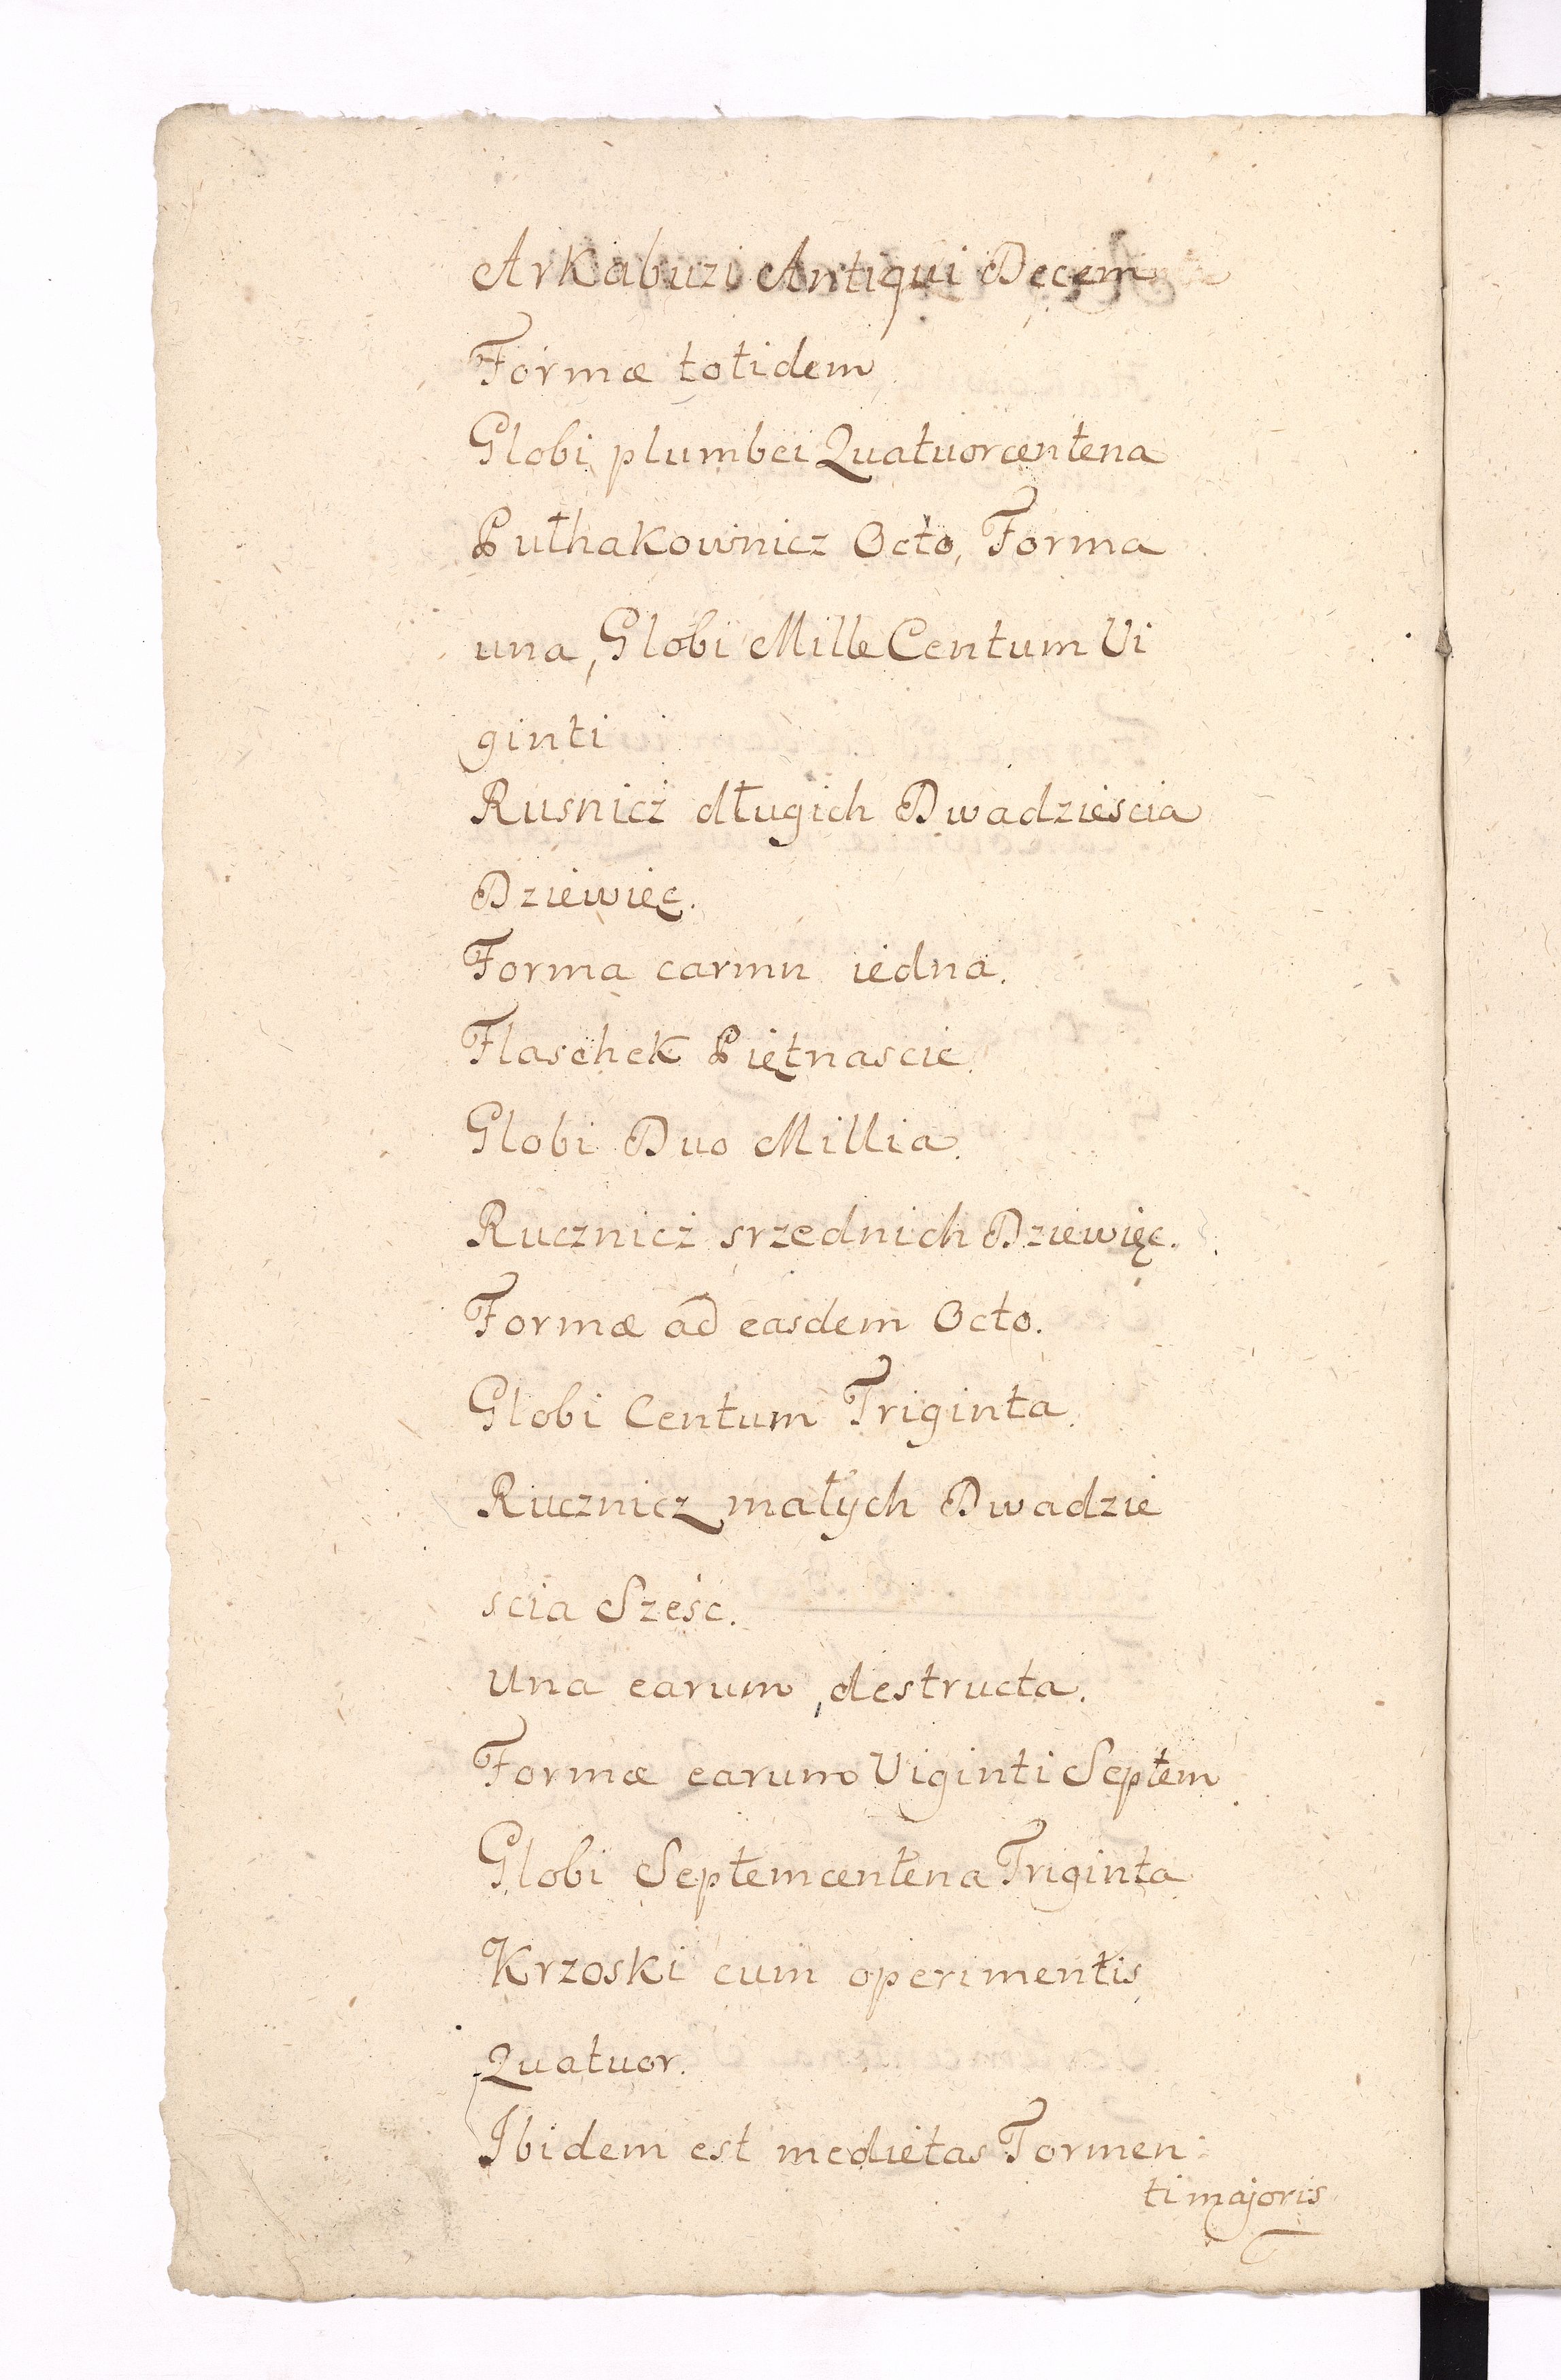 Arkabuzi Antiqui Decem
Formæ totidem
Globi plumbei Quatuorcentena
Pułhakownicz Octo, Forma
una, Globi Mille Centum Vi
ginti
Rusnicż długich Dwadzieścia
Dziewięc.
Forma carmn iedna.
Flaschek Piętnascie.
Globi Duo Millia.
Rucznicż srzednich Dziewięc.
Formæ ad easdem Octo.
Globi Centum Triginta.
Rucznicz małych Dwadzie
scia Sześc.
Una earum destructa.
Formæ earum Viginti Septem
Globi Septemcentena Triginta
Krzoski cum operimentis
Quatuor.
Ibidem est medietas Tormen:
ti majoris